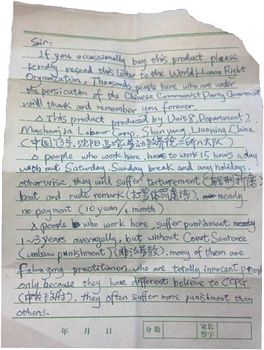 Sir:
If you occassionally buy this product, please
kindly resend this letter to the World Human Right
Organization. Thousands people here who are under
the persicution of the Chinese Communist Party Government
will thank and remember you forever.
This product produced by Unit 8, Department 2,
Masanjia Labour Camp, Shenyang, Liaoning, China
(中国,辽宁,沈阳,马三家劳动教养院二所八大队)
people who work here, have to work 15 hours a day
with out Saturday, Sunday break and any holidays,
otherwise, they will suffer torturement
beat and rude remark nearly
no payment (10 yuan/1 month)
people who work here, suffer punishment nearly
1~3 years averagelly, but without Court Sentence
(unlaw punishment) (非法劳教). many of them are
Falungong practitioner, who are totally innocent people
only because they have different believe to CCPG
they often suffer more punishment than
others.
年 月 日
分数
家长
签字